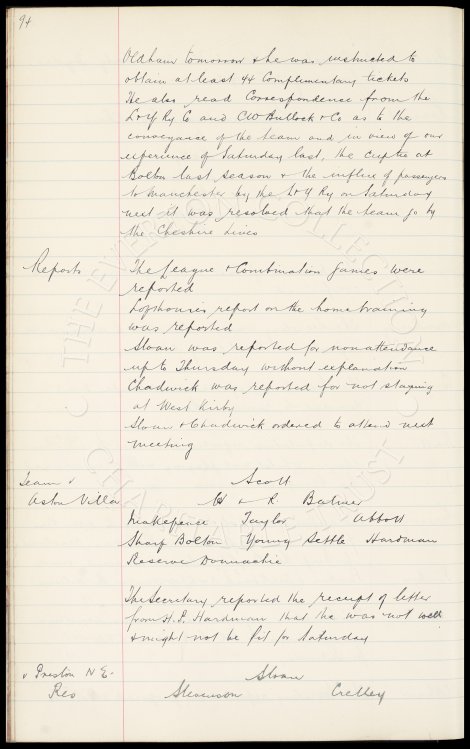 94
Oldham tomorrow & he was instructed to
obtain at least 44 Complimentary tickets
He also read Correspondence from the
L & Y Ry Co and CW Bullock & Co as to the
conveyance of the team and in view of our
experience of Saturday last, the cup tie at
Bolton last season & the influx of passengers
to Manchester by the L & Y Ry on Saturday
next it was resolved that the team go by
the Cheshire Lines
Reports The League & Combination Games were
reported
Lofthouses report on the home training
was reported
Sloan was reported for non attendance
up to Thursday without explanation
Chadwick was reported for not staying
at West Kirby
Sloan & Chadwick ordered to attend next
meeting
Team v Scott
Aston Villa W & R Balmer
Makepeace Taylor Abbott
Sharp Bolton Young Settle Hardman
Reserve Donnachie
The Secretary reported the receipt of letter
from H.P. Hardman that he was not well
& might not be fit for Saturday
v Preston N E. Sloan
Res Stevenson Crelley
THE EVERTON COLLECTION
CHARITABLE TRUST